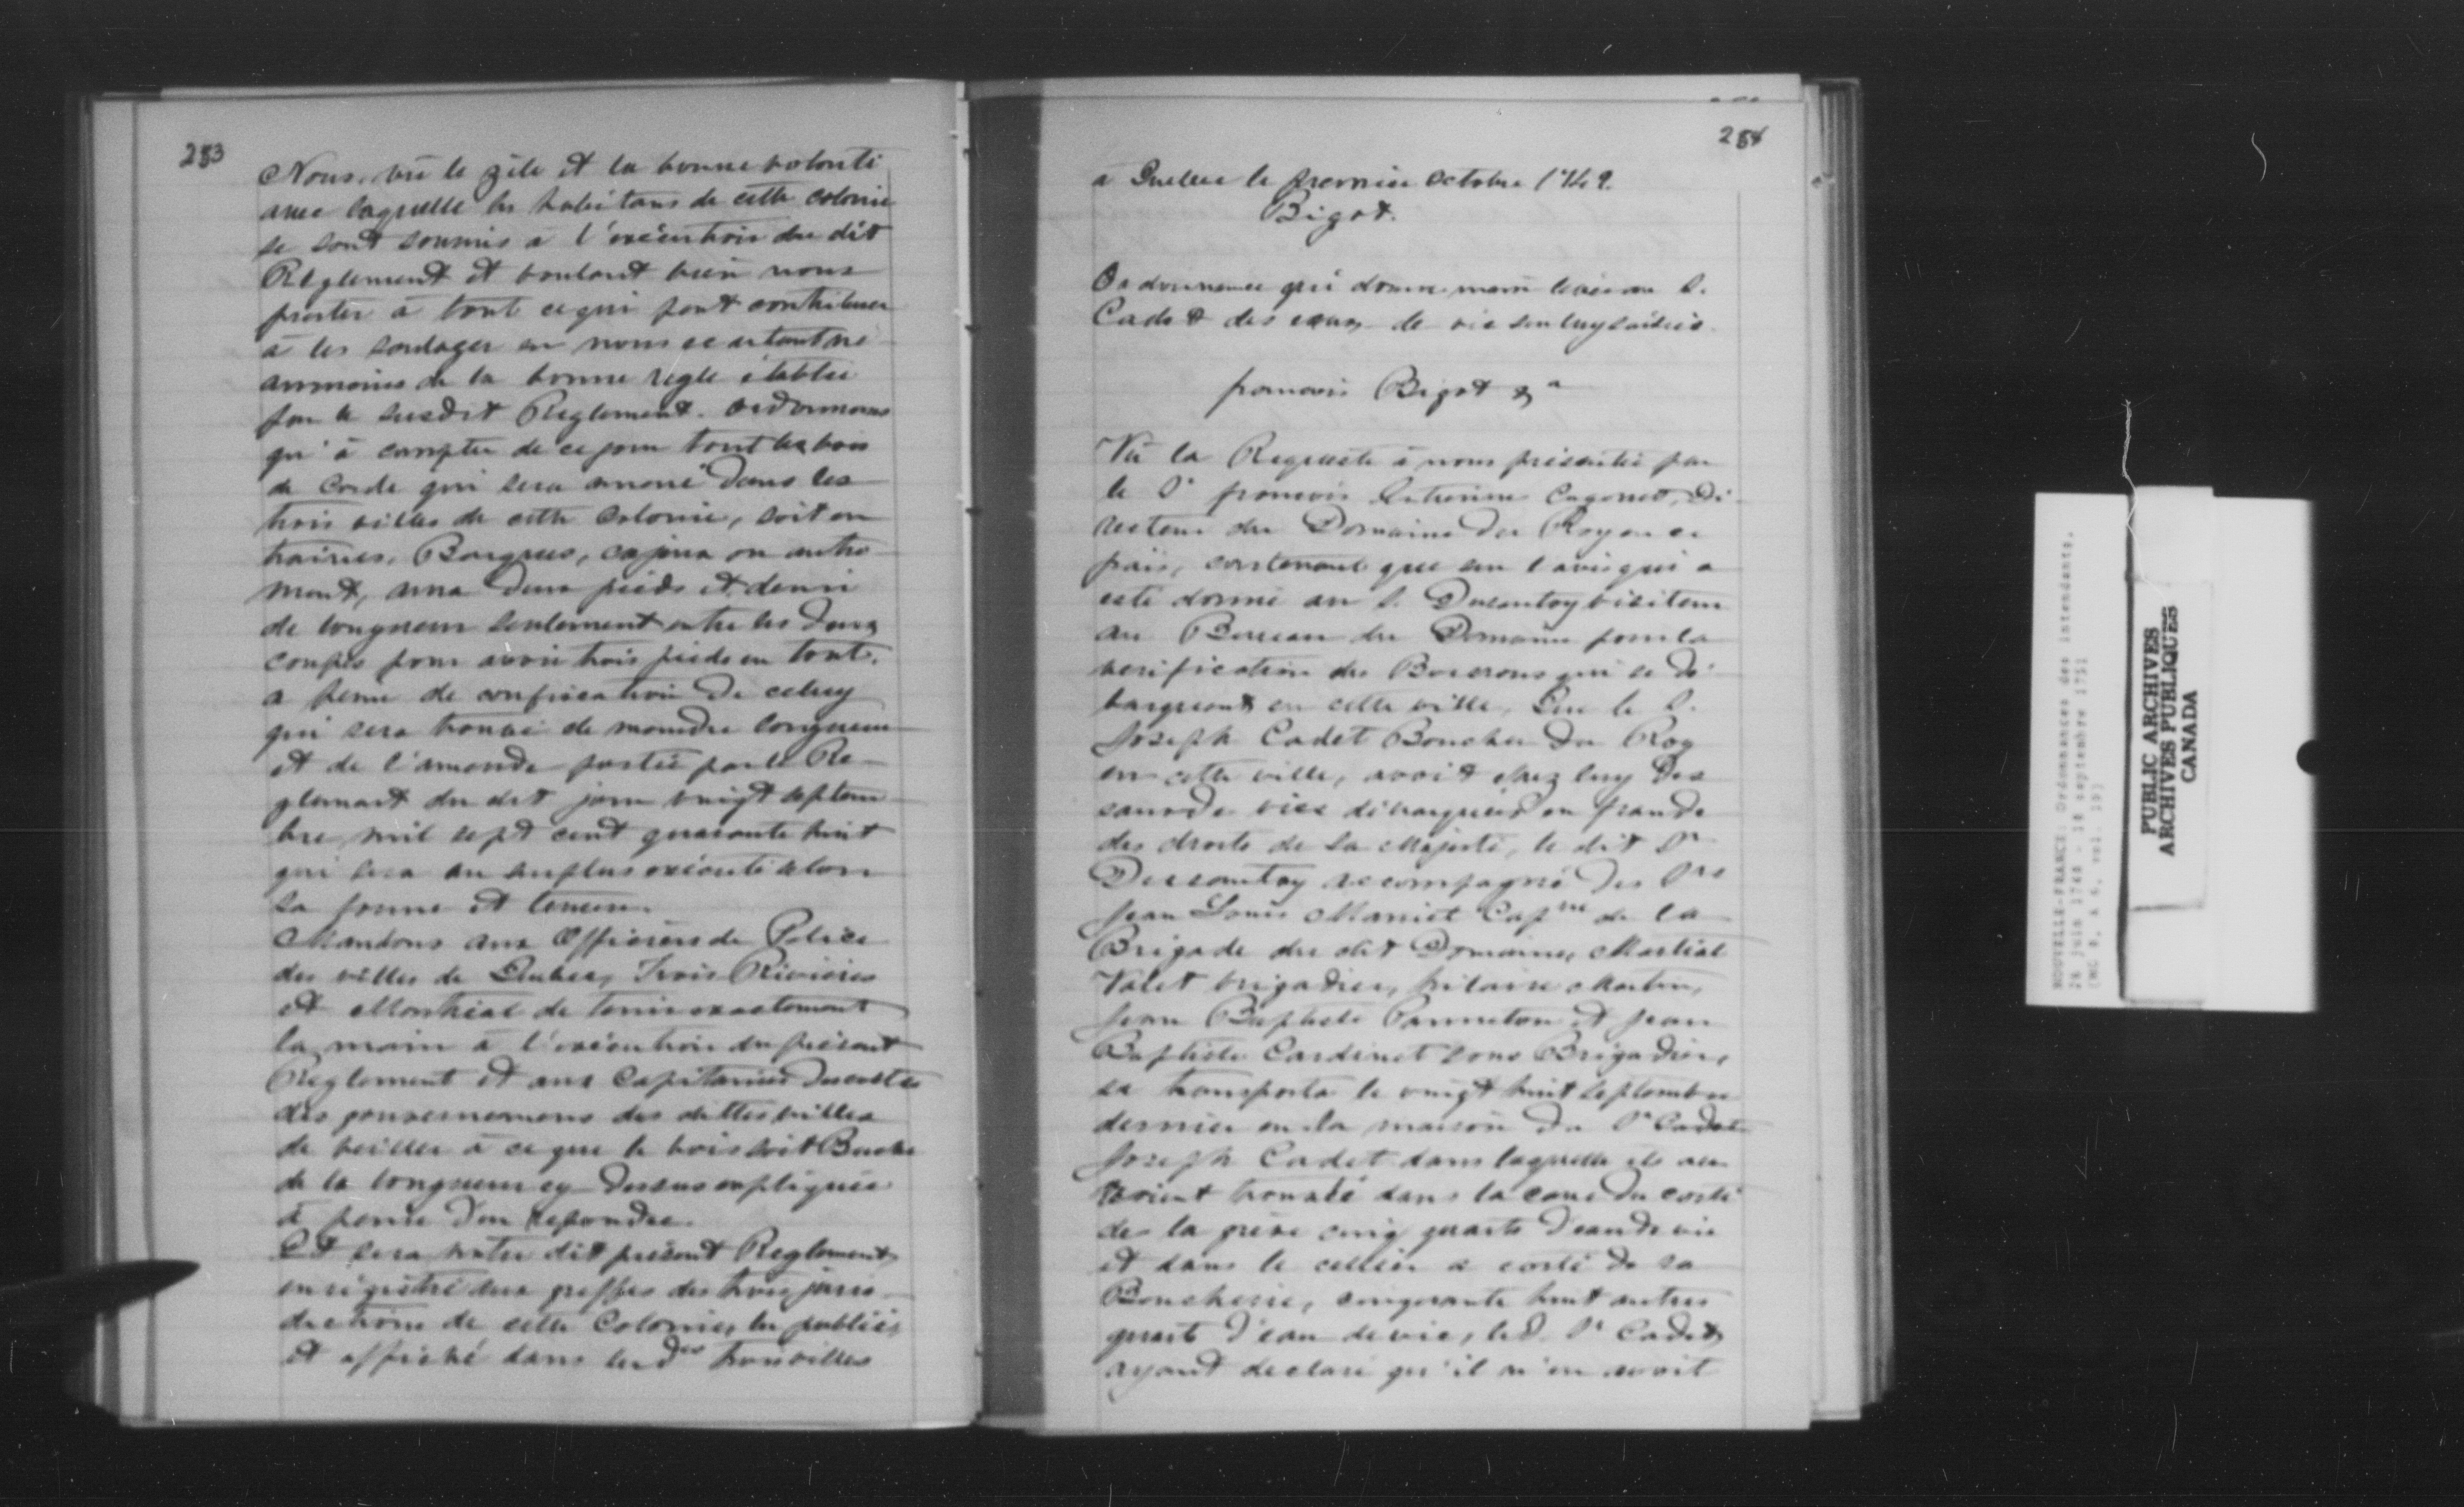 283
Nous, vû le zèle et la bonne volonté
avec laquelle les habitans de cette colonie
se sont soumis à l'exécution du dit
Réglement et voulant bien nous
prester à tout ce qui peut contribuer
à les soulager en nous ecartant né
anmoins de la bonne regle établie
par le susdit Réglement. ordonnons
qu'à compter de ce jour tout les bois
de Corde qui sera amené dans les
trois villes de cette Colonie, soit en
traines, Barques, cajeux ou autre
ment, aura deux pieds et demi
de longueur seulement entre les deux
coupes pour avoir trois pieds en tout.
a peine de confiscation de celuy
qui sera trouvé de moindre longueur
et de l'amende portée par le Re-
glement du dit jour vingt septem
bre mil sept cent quarante huit
qui sera au surplus exécuté selon
sa forme et teneur.
Mandons aux Officiers de Police
des villes de Quebec, Trois Rivieres
et Montréal de tenir exactement
la main à l'exécution du présent
Reglement et aux Capitaines des costes
des gouvernemens des dittes villes
de veiller à ce que le bois soit Buché
de la longueur cy-dessus expliquée
à peine d'en repondre.
Et sera notre dit présent Reglement
enrégistré aux greffes des trois juris-
dictions de cette Colonie, lu publié,
et affiché dans les d.es trois villes
284
à Quebec le premier Octobre 1749.
Bigot.
Ordonnance qui donne main levée au S.
Cadet des eaux de vie sur luy saisies.
françois Bigot &a
Vû la Requeste à nous présentée par
le Sr françois Cugnet, Di-
recteur du Domaine du Roy en ce
païs, contenant que sur l'avis qui a
esté donné au S. visiteur
au Bureau du Domaine pour la
verification des Boissons qui se dé
barquent en cette ville, Que le S.
Joseph Cadet Boucher du Roy
en cette ville, avoit chez luy des
eaux de vies débarquées en fraude
des droits de Sa Majesté, le dit Sr
accompagné des Srs
Jean Louis Capne de la
Brigade du dit Domaine, Martial
Valet brigadier, hilaire Martin,
Jean Baptiste Panneton et Jean
Baptiste Cardinet sous Brigadier,
se transporta le vingt huit septembre
dernier en la maison du Sr Cadet
Joseph Cadet dans laquelle ils au
roient trouvé dans la cour du costé
de la grève cinq quarts d'eau de vie
et dans le cellier a costé de sa
Boucherie, cinquante huit autres
quart d'eau de vie, led. Sr Cadet
ayant declaré qu'il n'en avoit
NOUVELLE-FRANCE: Ordonnances des intendants,
PUBLIC ARCHIVES
ARCHIVES PUBLIQUES
CANADA